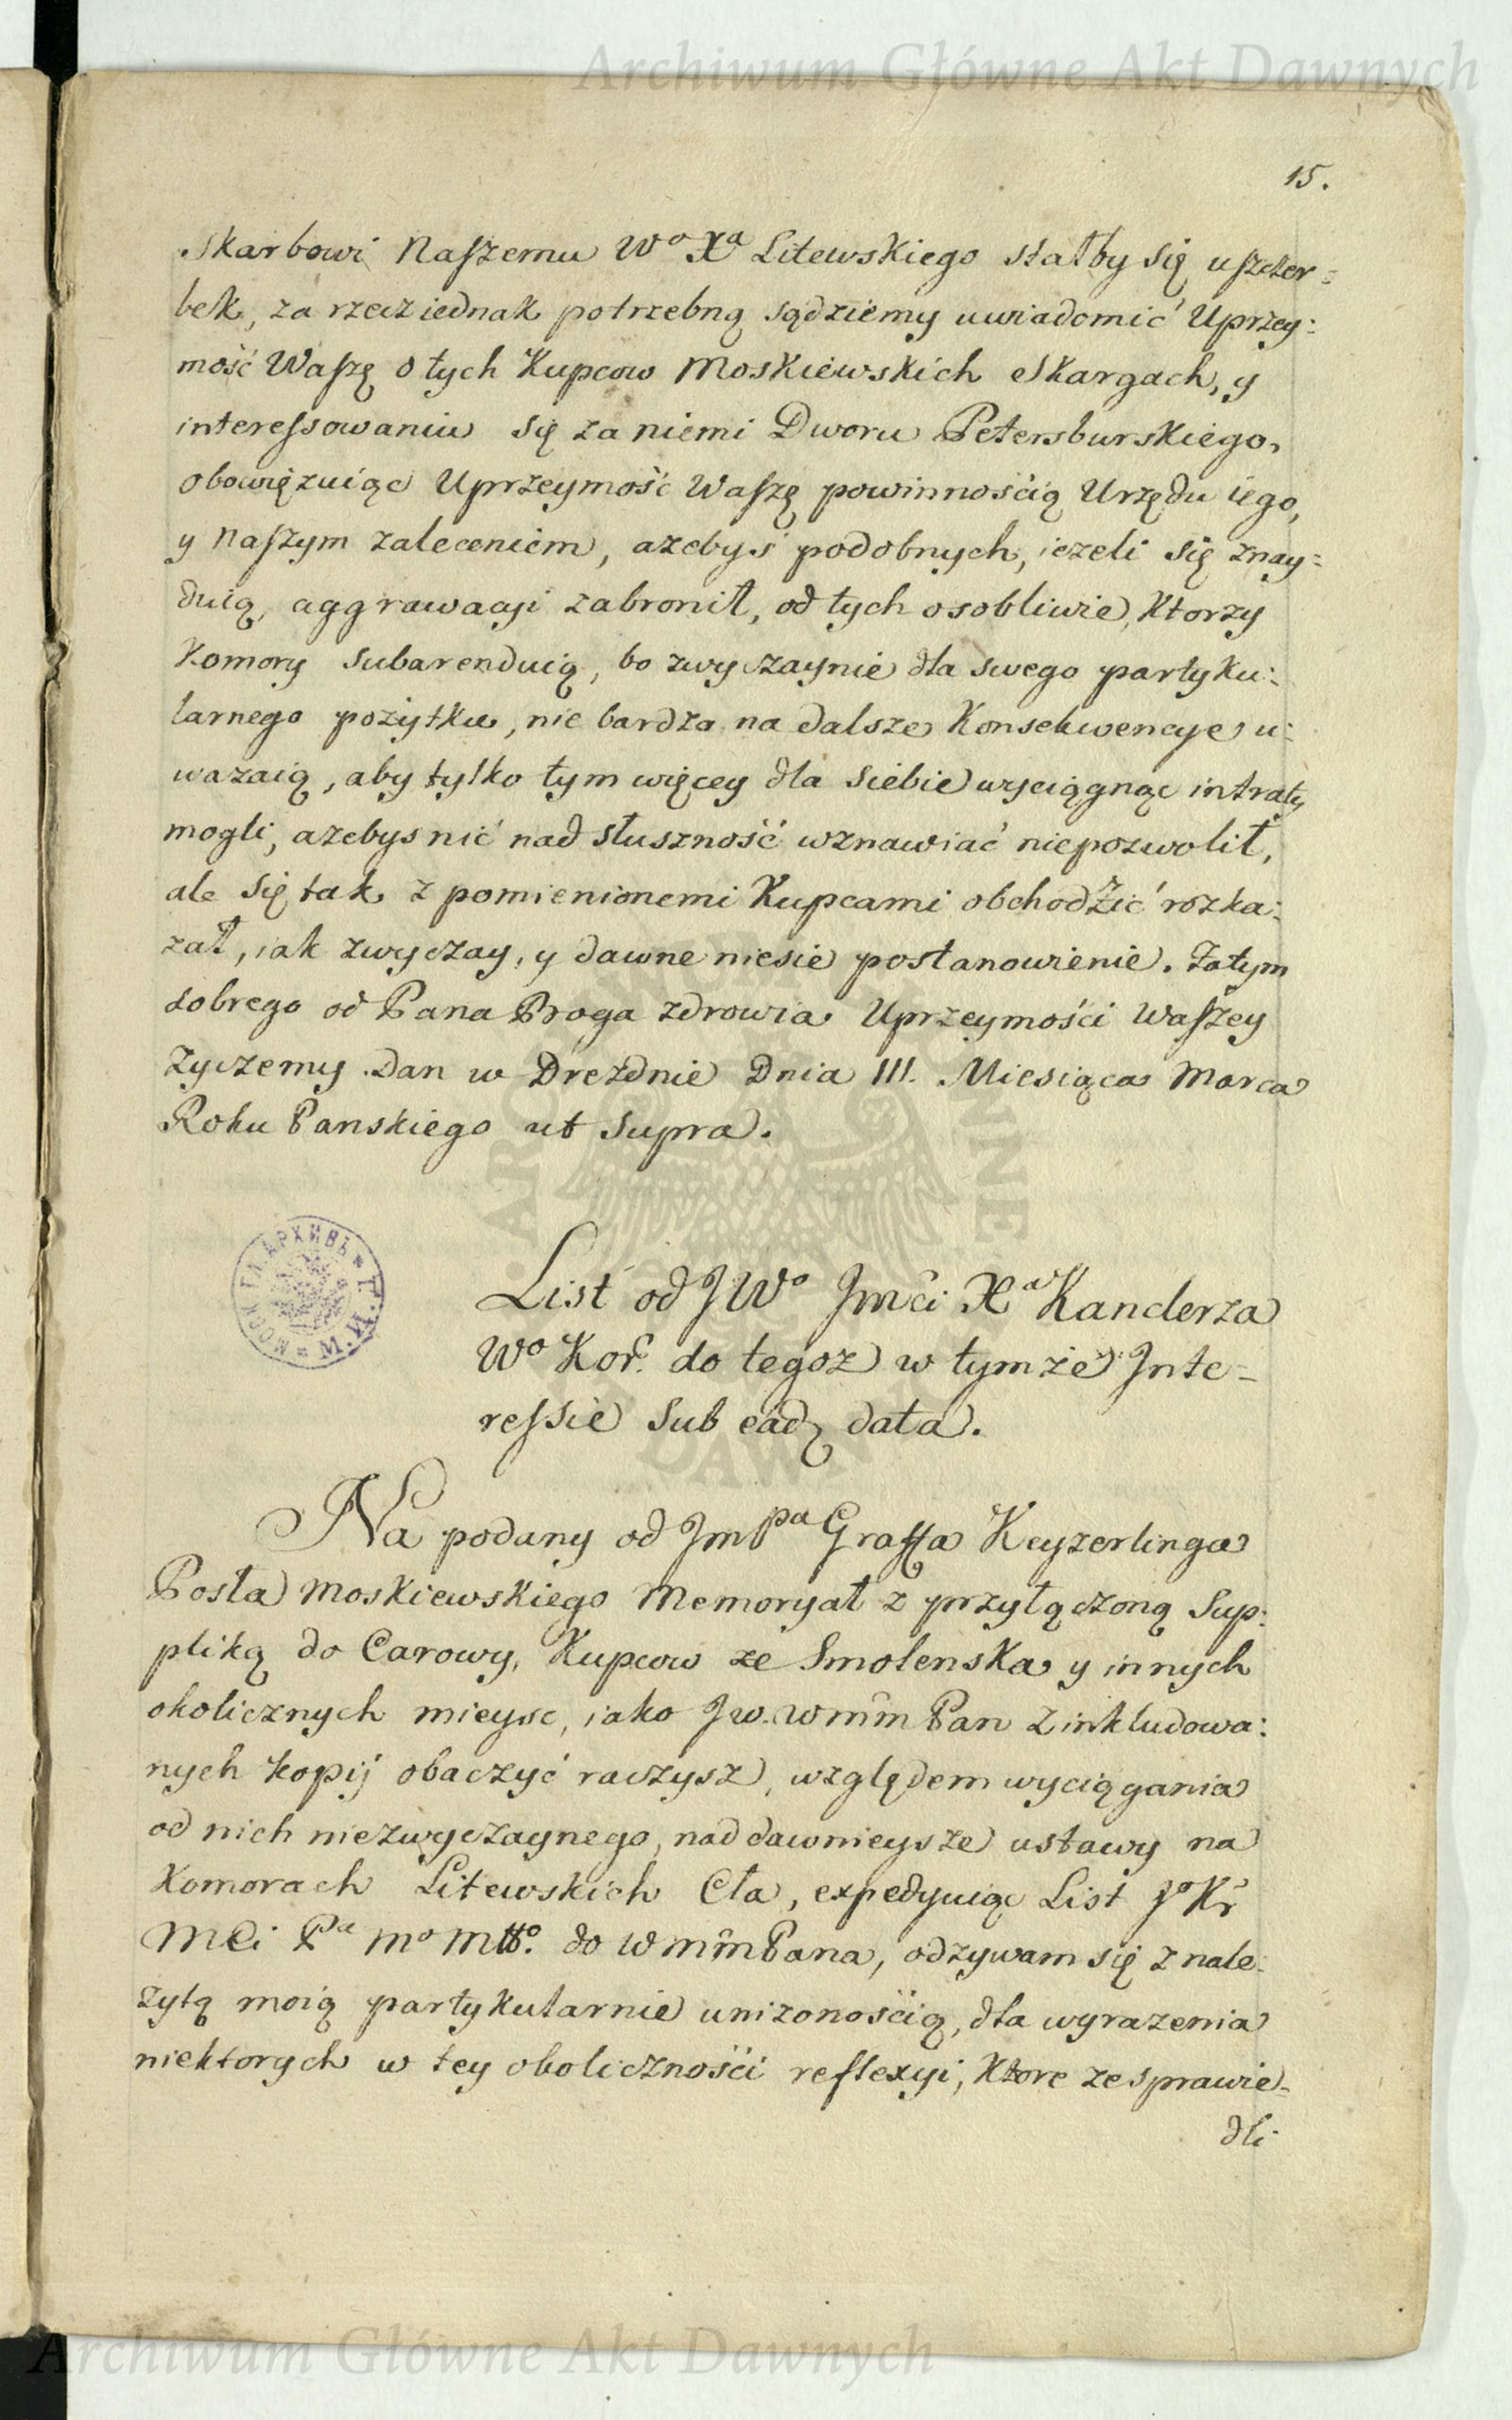 Archiwum Główne Akt Dawnych
15.
Skarbowi Naszemu Wo Xa Litewskiego stałby się uszczer=
bek, za rzecz iednak potrzebną sądziemy uwiadomić Uprzey:
mość Waszę o tych Kupcow Moskiewskich Skargach, y
interessowaniu się za niemi Dworu Petersburskiego,
obowięzuiąc Uprzeymość Waszę powinnośćią Urzędu iego,
y Naszym zaleceniem, azebyś podobnych, iezeli się znay=
duią, aggrawacyi zabronił, od tych osobliwie, Ktorzy
Komory subarenduią, bo zwyczaynie dla swego partyku:
larnego pożytku, nie bardzo na dalsze Konsekwencye u:
wazaią, aby tylko tym więcey dla siebie wyciągnąc intraty
mogli, azebys nić nad słuszność wznawiać niepozwolił,
ale się tak z pomienionemi Kupcami obchodźić rozka:
zał, iak zwyczay, y dawne niesie postanowienie. Zatym
dobrego od Pana Boga zdrowia Uprzeymośći Waszey
Zyczemy. Dan w Dreżdnie Dnia III. Miesiąca Marca
Roku Panskiego ut supra.
List od JWo Jmći Xa Kanclerza
Wo Kor. do tegoz w tymże Inte-
ressie sub eadę data.
Na podany od JmPa Graffa Keyzerlinga
Posła Moskiewskiego Memoryał z przyłączoną Sup:
pliką do Carowy, Kupcow ze Smolenska y innych
okolicznych mieysc, iako Jw. Wmm Pan z inkludowa:
nych kopij obaczyć raczysz, względem wyciągania
od nich niezwyczaynego, nad dawnieysze ustawy na
Komorach Litewskich Cła, expedyuiąc List Jo Kr
Mci Pa Mo Mtto. do WmmPana, odzywam się z nale:
żytą moią partykularnie unizonośćią, dla wyrazenia
niektorych w tey okolicznośći reflexyi, Ktore ze sprawie-
dli-
Archiwum Główne Akt Dawnych